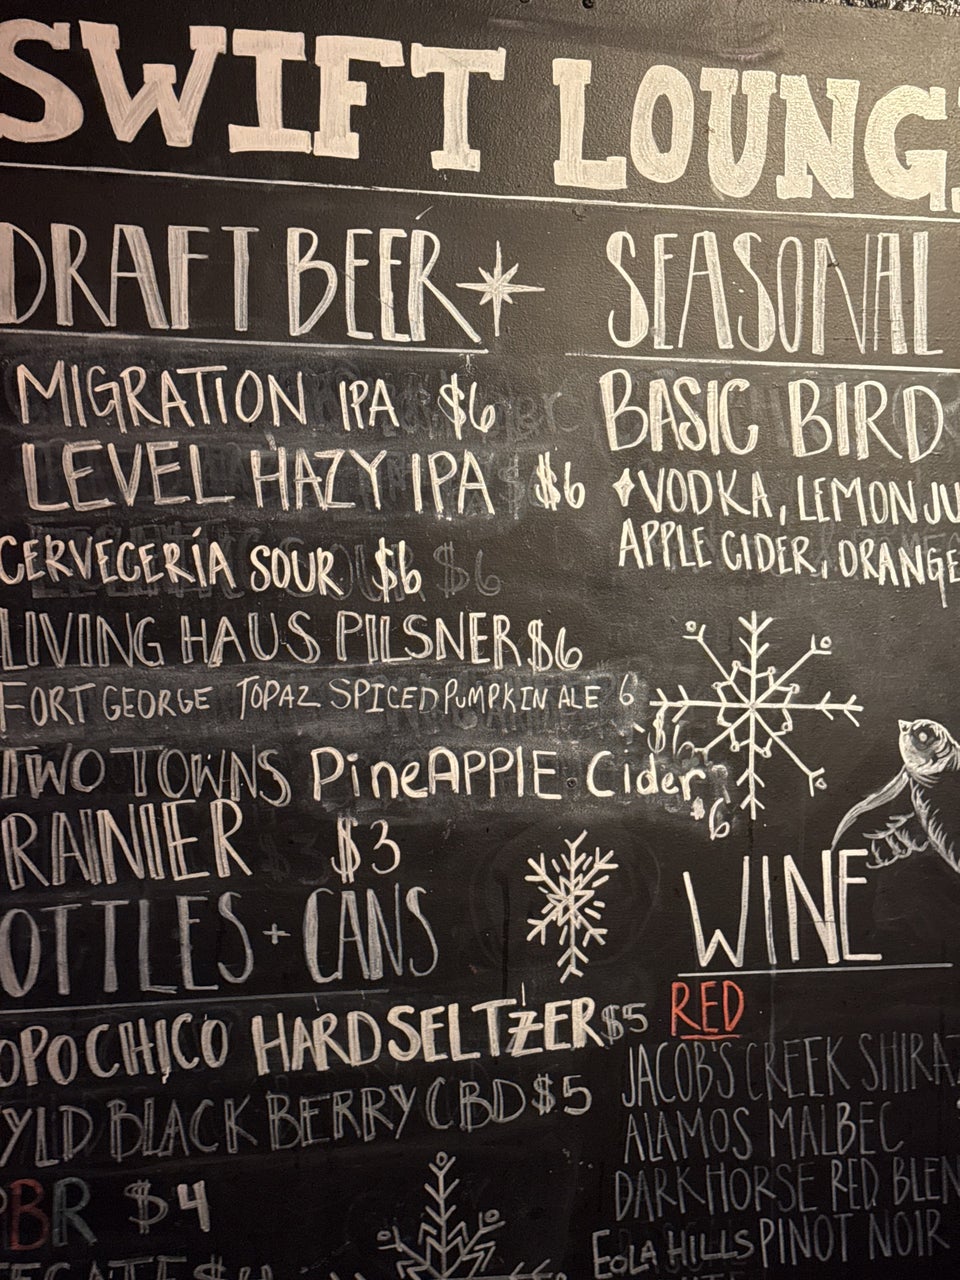 SWIFT LOUNG
DRAFT BEER
MIGRATION IPA $6
LEVEL HAZY IPA $6
CERVECERÍA SOUR $6
LIVING HAUS PILSNER $6
FORT GEORGE TOPAZ SPICED PUMPKIN ALE 6
TWO TOWNS PineAPPLE Cider
$6
RAINIER $3
OTTLES + CANS
OPO CHICO HARD SELTZER $5
YLD BLACK BERRY CBD $5
PBR $4
SEASONAL
BASIC BIRD
VODKA, LEMON JU
APPLE CIDER, ORANGE
WINE
RED
JACOB'S CREEK SHIRAZ
ALAMOS MALBEC
DARK HORSE RED BLEN
EOLA HILLS PINOT NOIR